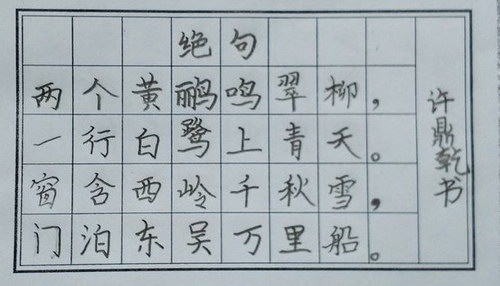 绝句
两个黄鹂鸣翠柳，
一行白鹭上青天。
窗含西岭千秋雪，
门泊东吴万里船。
许鼎乾书